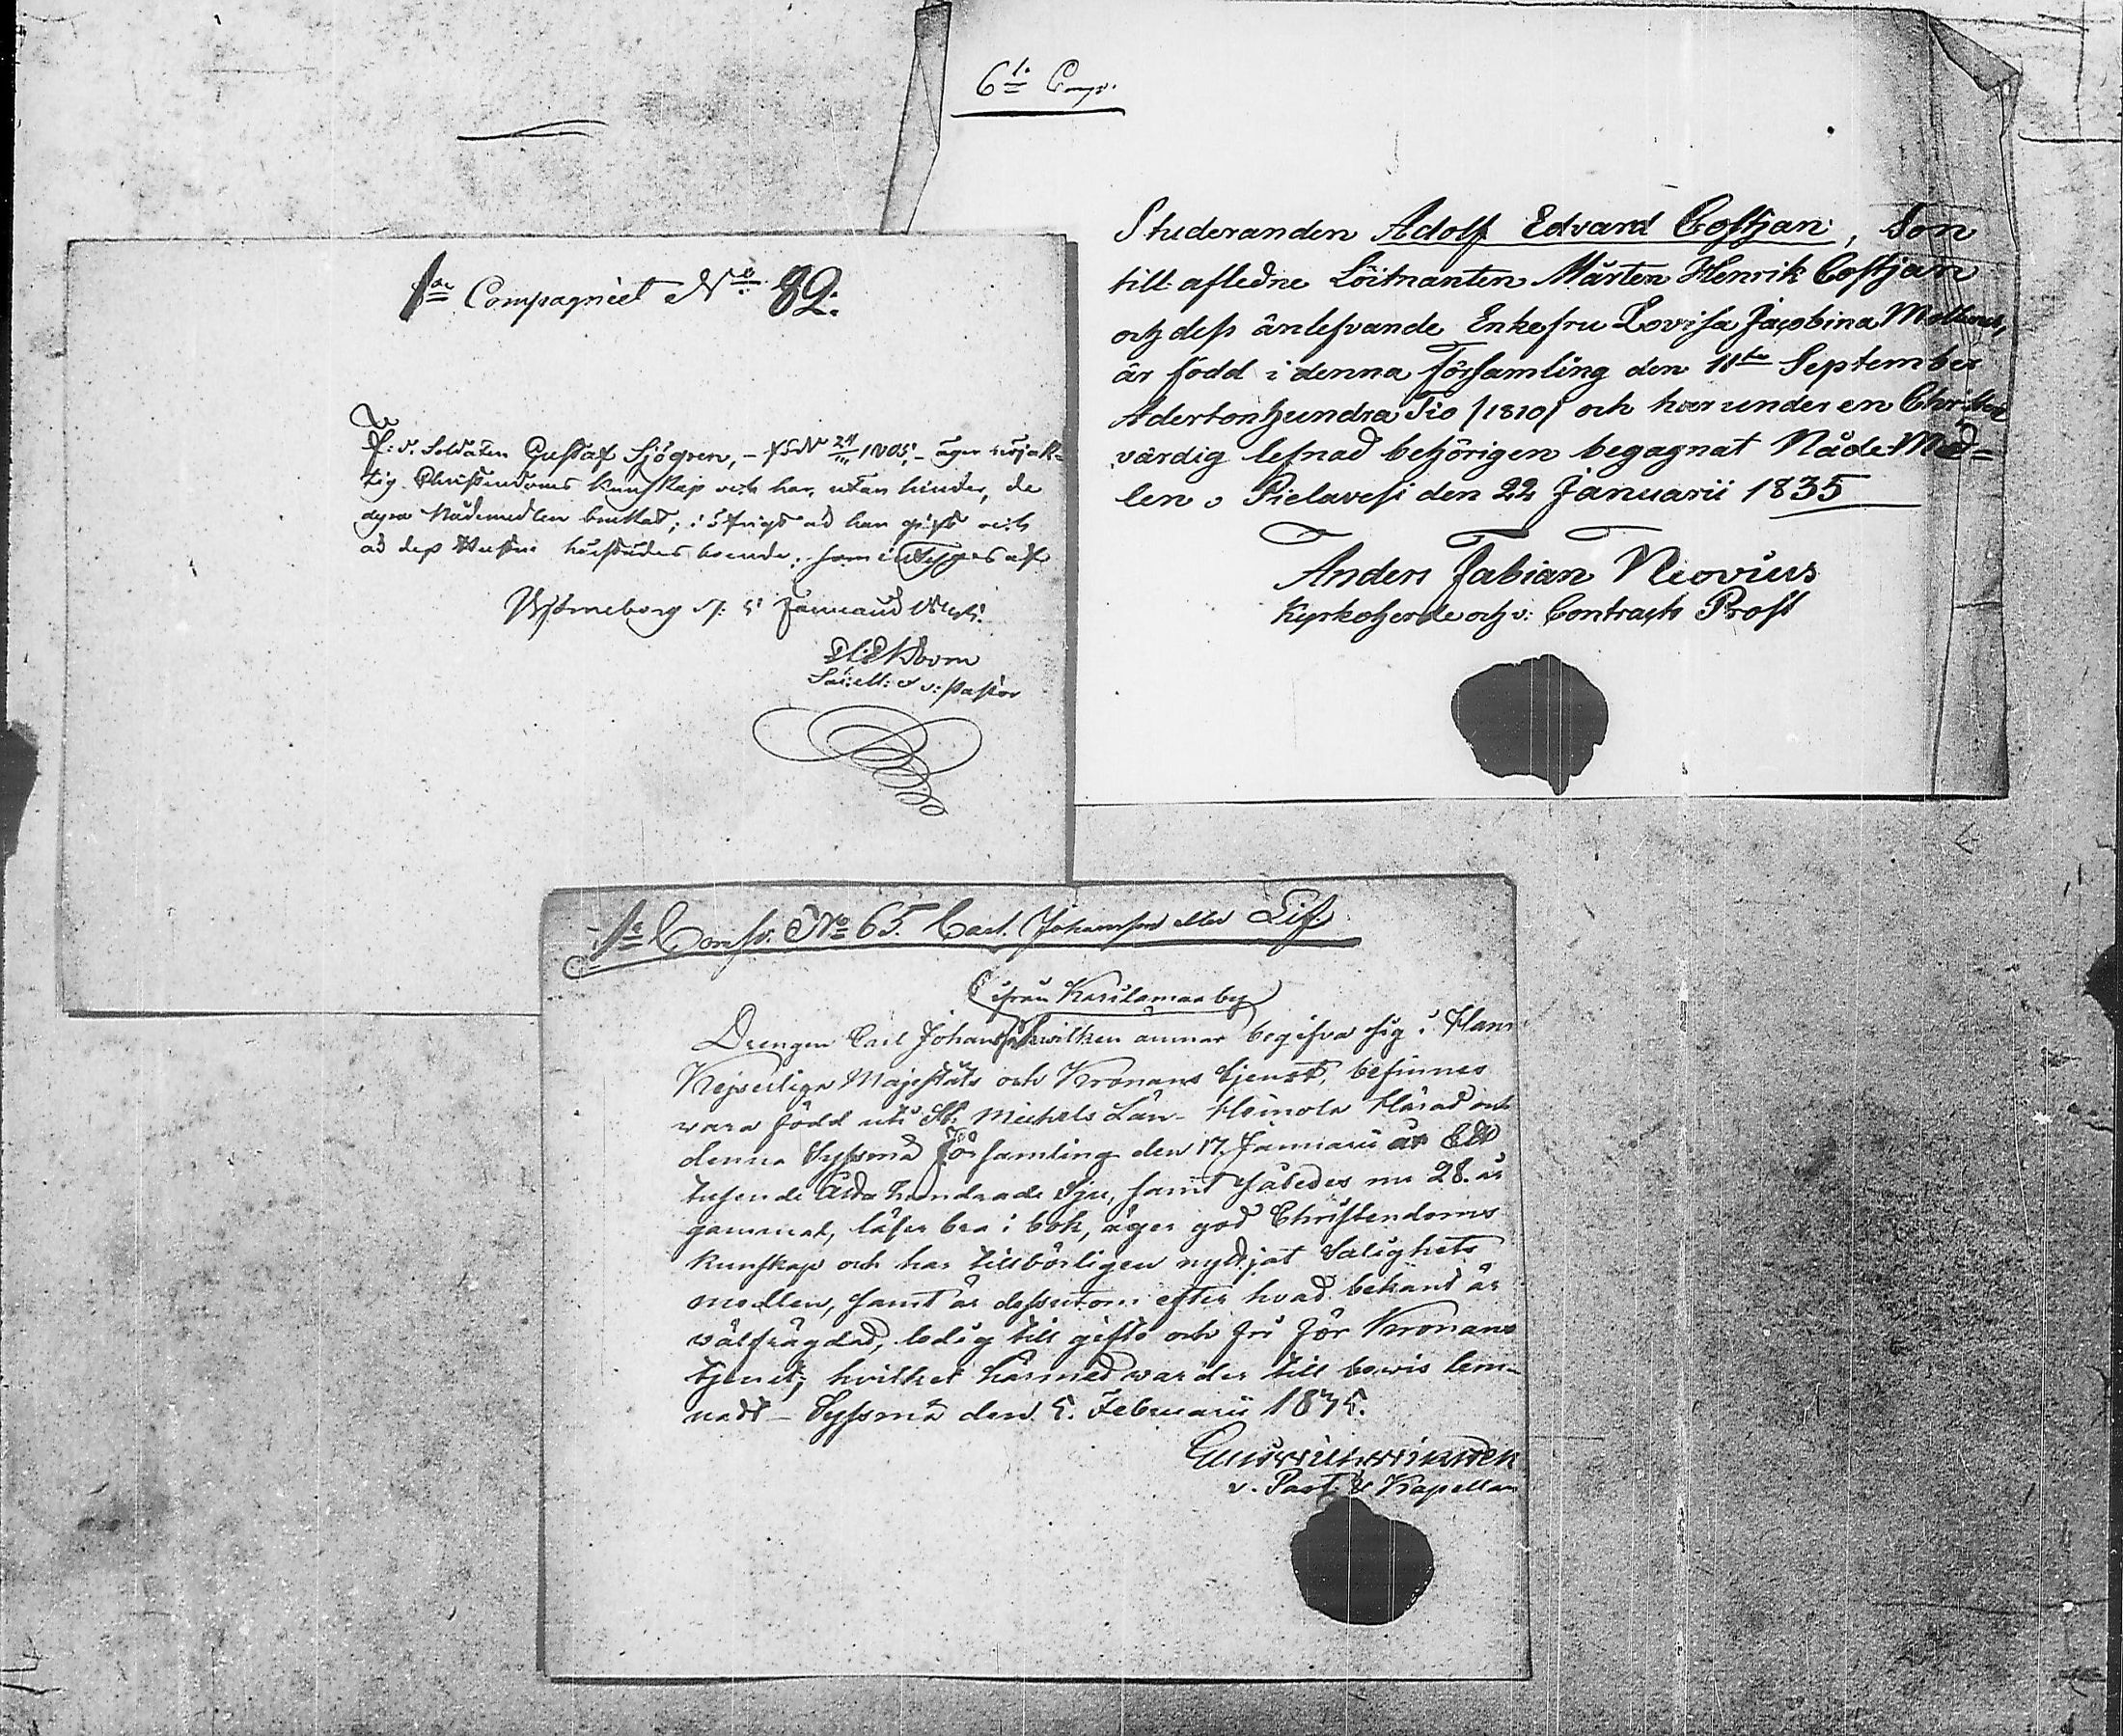 1:a Compagniet No 82.
F. d. Soldaten Gustaf Sjögren, - född 24/III 1805, - äger nöjak=
tig Christendoms kunskap och har, utan hinder, de
dyra Nådemedlen bruktat; i öfrigt är han gift och
är dess hustru härstädes boende; som intygas af
Björneborg d. 5 Januarii
v: Pastor
6:t Comp.
Studeranden Adolf Edvard Costjan, Son
till afledne Löitnanten Mårten Henrik Costjan
och dess änlefvande Enkefru Lovisa Jacobina
är född i denna Församling den 11te September
Adertonhundra Tio /1810/ och har under en Christ
värdig lefnad behörigen begagnat Nåde Med=
len; Pielavesi den 22 Januarii 1835
Anders Fabian Neovius
Kyrkoherde och v: Contracts Prost
1:e Comp. No 65. Carl Johansson eller Lif.
(ifrån Karilamaa by)
Drengen Carl Johansson hvilken ämnar begifva sig i Hans
Kejserliga Majestäts och Kronans tjenst, befinnes
vara född uti St. Michels Län - Heinola Härad och
denna Sysmä Församling den 17. Januarii år Ett
tusende åtta hundrade Sju, samt således nu 28. år
gammal, läser bra i bok, äger god Christendoms
kunskap och har tillbörligen nyttjat Salighets
medlen, samt är dessutom efter hvad bekant är
välfrägdad, ledig till gifte och fri för Kronans
tjenst; hvilket härmed varder till bevis lem-
nadt - Sysmä den 5. Februarii 1835.
v. Past. & Kapellan